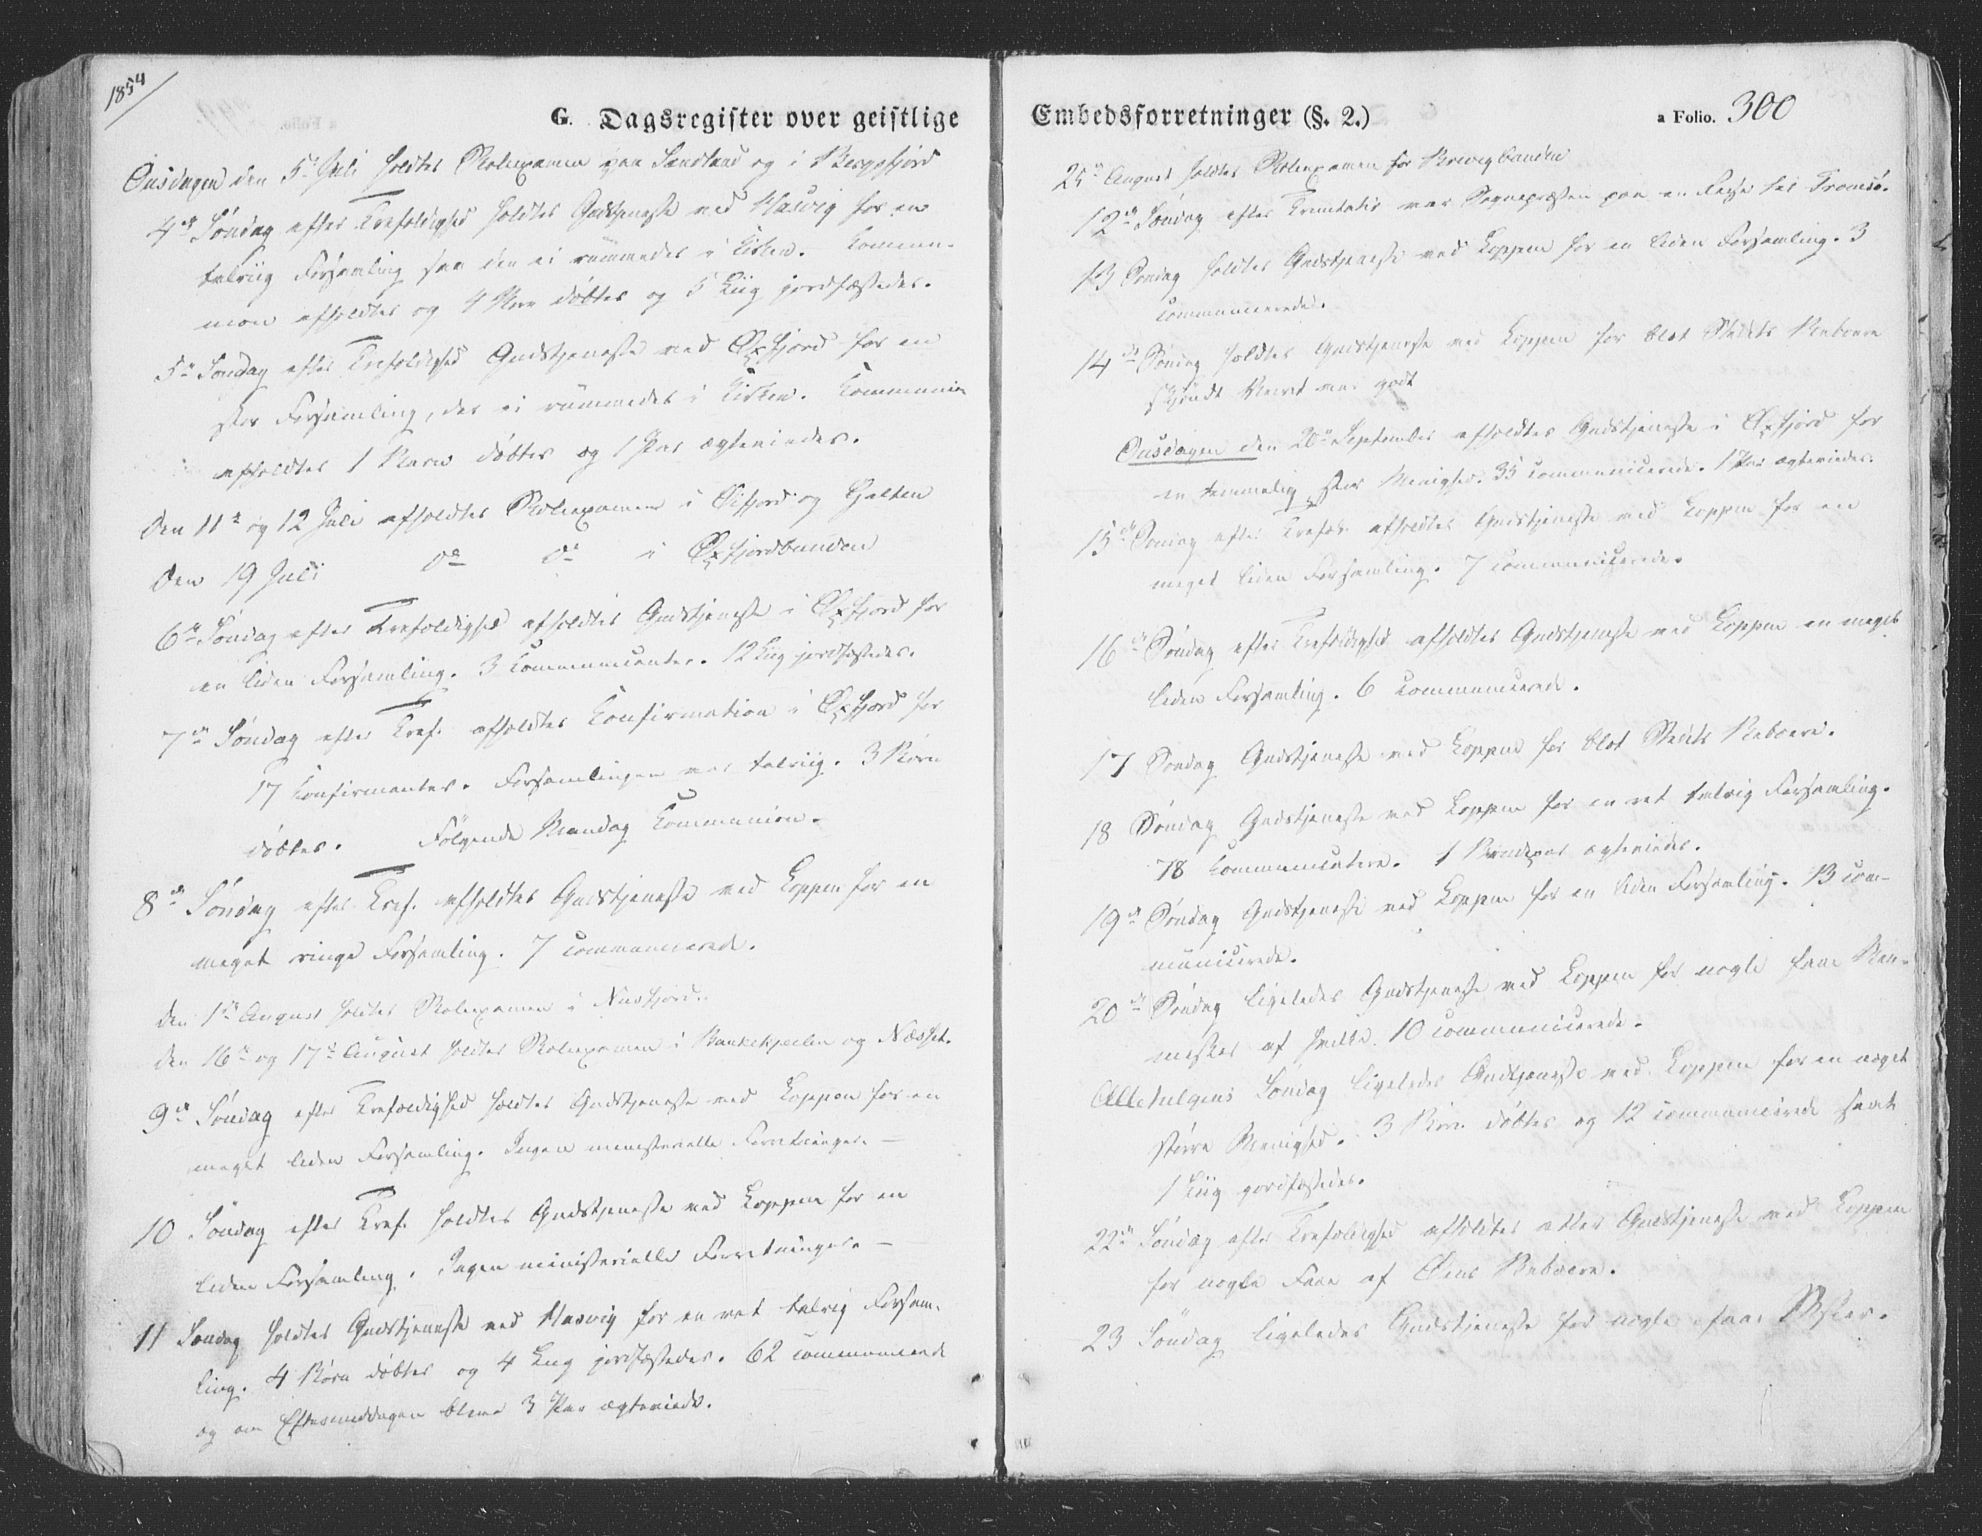 1854
G. Dagsregister over geistlige
Onsdagen den 5te Juli holdtes Skoleexamen paa Sandland og i Bergsfjord
4de Søndag efter Trefoldighed holdtes Gudstjeneste ved Hasvig for en
talriig Forsamling saa den ei rummedes i Kirken. Commun-
nion afholdtes og 4 Børn døbtes og 5 Liig jordfæstedes.
5te Søndag efter Trefoldighed Gudstjeneste ved Øxfjord for en
stor Forsamling, der ei rummedes i Kirken. Communion
afholdtes 1 Barn døbtes og 1 Par ægteviedes.
Den 11te og 12 Juli afholdtes Skoleexamen i Øifjord og Galten
Den 19 Juli do do i Øxfjordbunden
6te Søndag efter Trefoldighed afholdtes Gudstjeneste i Øxfjord for
en liden Forsamling. 3 Communicanter. 12 Liig jordfæstedes.
7de Søndag efter Tref. afholdtes Confirmation i Øxfjord for
17 Confirmanter. Forsamlingen var talriig. 3 Børn
døbtes. Følgende Mandag Communion.
8de Søndag efter Tref. afholdtes Gudstjeneste ved Loppen for en
meget ringe Forsamling. 7 communicerede.
den 1ste August holdtes Skoleexamen i Nusfjord.
den 16de og 17de August holdtes Skoleexamen i og Næsset.
9de Søndag efter Trefoldighed holdtes Gudstjeneste ved Loppen for en
meget liden Forsamling. Ingen ministerielle Forretninger. —
10 Søndag efter Tref. holdtes Gudstjeneste ved Loppen for en
liden Forsamling. Ingen ministerielle Forretninger. —
11 Søndag holdtes Gudstjeneste ved Hasvig for en ret talrig Forsam-
ling. 4 Børn døbtes og 4 Liig jordfæstedes. 62 communicerede
og om Eftermiddagen bleve 3 Par ægteviede.
Embedsforretninger (§. 2.)
a Folio. 300
25de August holdtes Skoleexamen for
12te Søndag efter Trinitatis var Sognepræsten paa en Rejse til Tromsø.
13 Søndag holdtes Gudstjeneste ved Loppen for en liden Forsamling. 3
communicerede.
14de Søndag holdtes Gudstjeneste ved Loppen for blot Stedets Beboere
skjøndt Veiret var godt
Onsdagen den 20de September afholdtes Gudstjeneste i Øxfjord for
en temmelig stor Menighed. 35 communicerede. 1 Par ægteviedes.
15de Søndag efter Trefol. afholdtes Gudstjeneste ved Loppen for en
meget liden Forsamling. 7 communicerede.
16de Søndag efter Trefoldighed afholdtes Gudstjeneste ved Loppen en meget
liden Forsamling. 6 communicerede.
17 Søndag Gudstjeneste ved Loppen for blot Stedets Beboere.
18 Søndag Gudstjeneste ved Loppen for en ret talrig Forsamling.
78 Communicantere. 1 Brudepar ægteviedes.
19de Søndag Gudstjeneste ved Loppen for en liden Forsamling. 13 com-
municerede.
20de Søndag ligeledes Gudstjeneste ved Loppen for nogle faae Men-
nesker af hvilke 10 communicerede.
Allehelgens Søndag ligeledes Gudstjeneste ved Loppen for en noget
større Menighed. 3 Børn døbtes og 12 communicerede samt
1 Liig jordfæstedes.
22de Søndag efter Trefoldighed afholdtes atter Gudstjeneste ved Loppen
for nogle Faae af Øens Beboere.
23 Søndag ligeledes Gudstjeneste for nogle faae